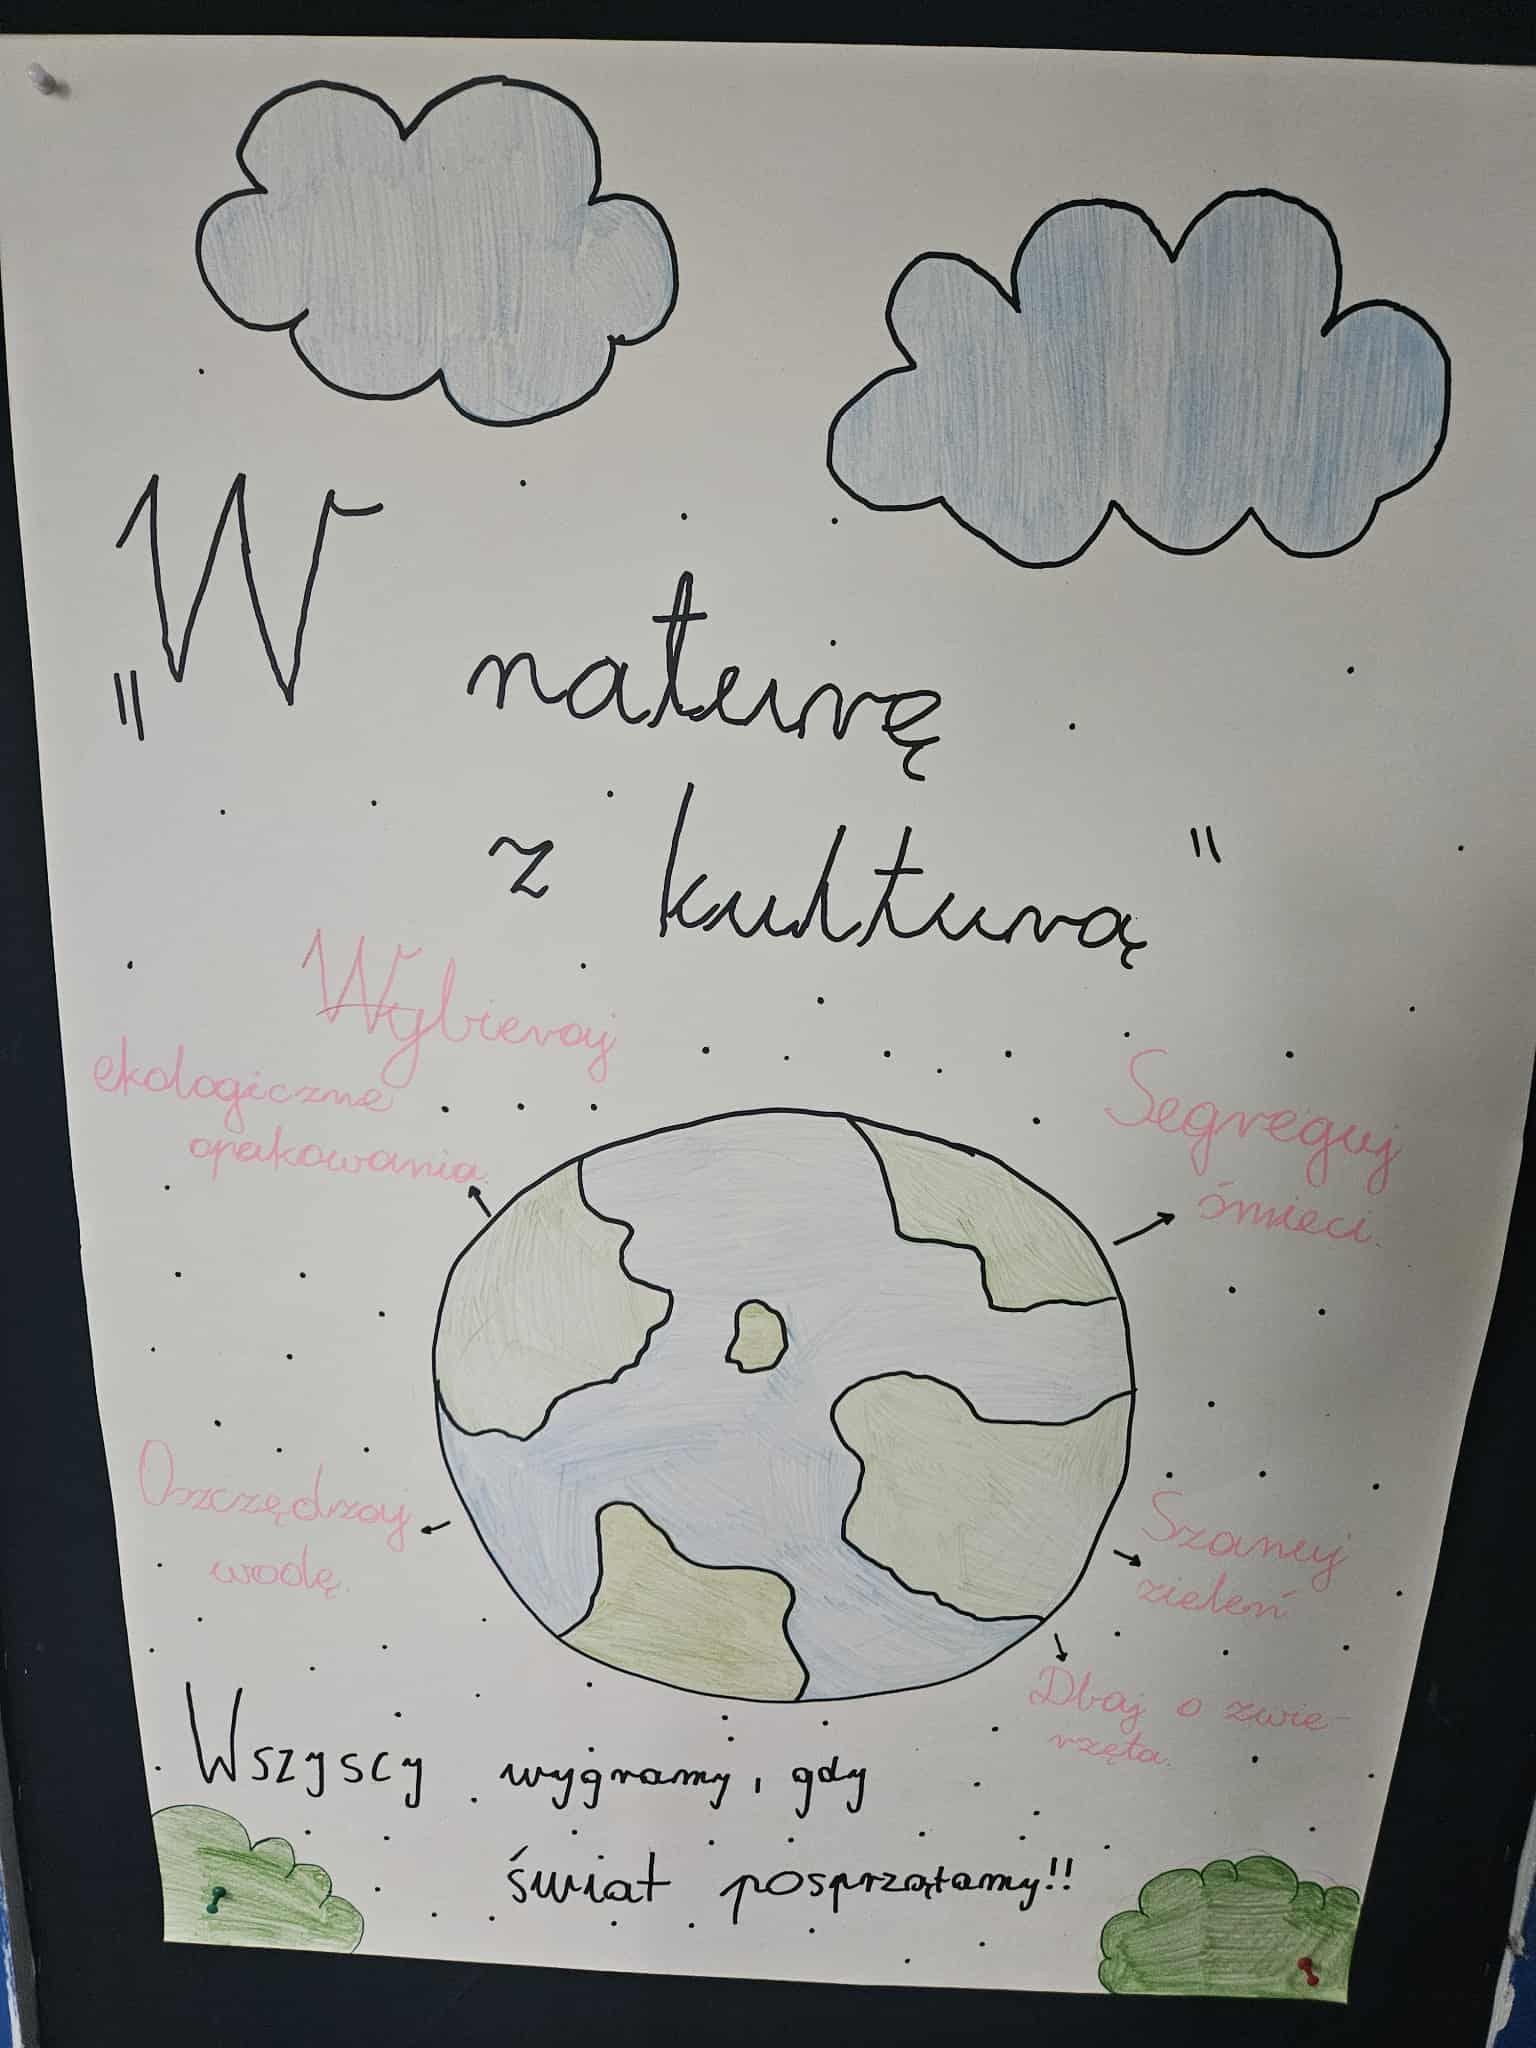 „W naturę
z kulturą"
Wybieraj
ekologiczne
opakowania.
Segreguj
śmieci.
Oszczędzaj
wodę.
Szanuj
zieleń
Dbaj o zwie-
rzęta.
Wszyscy wygramy, gdy
świat posprzątamy!!